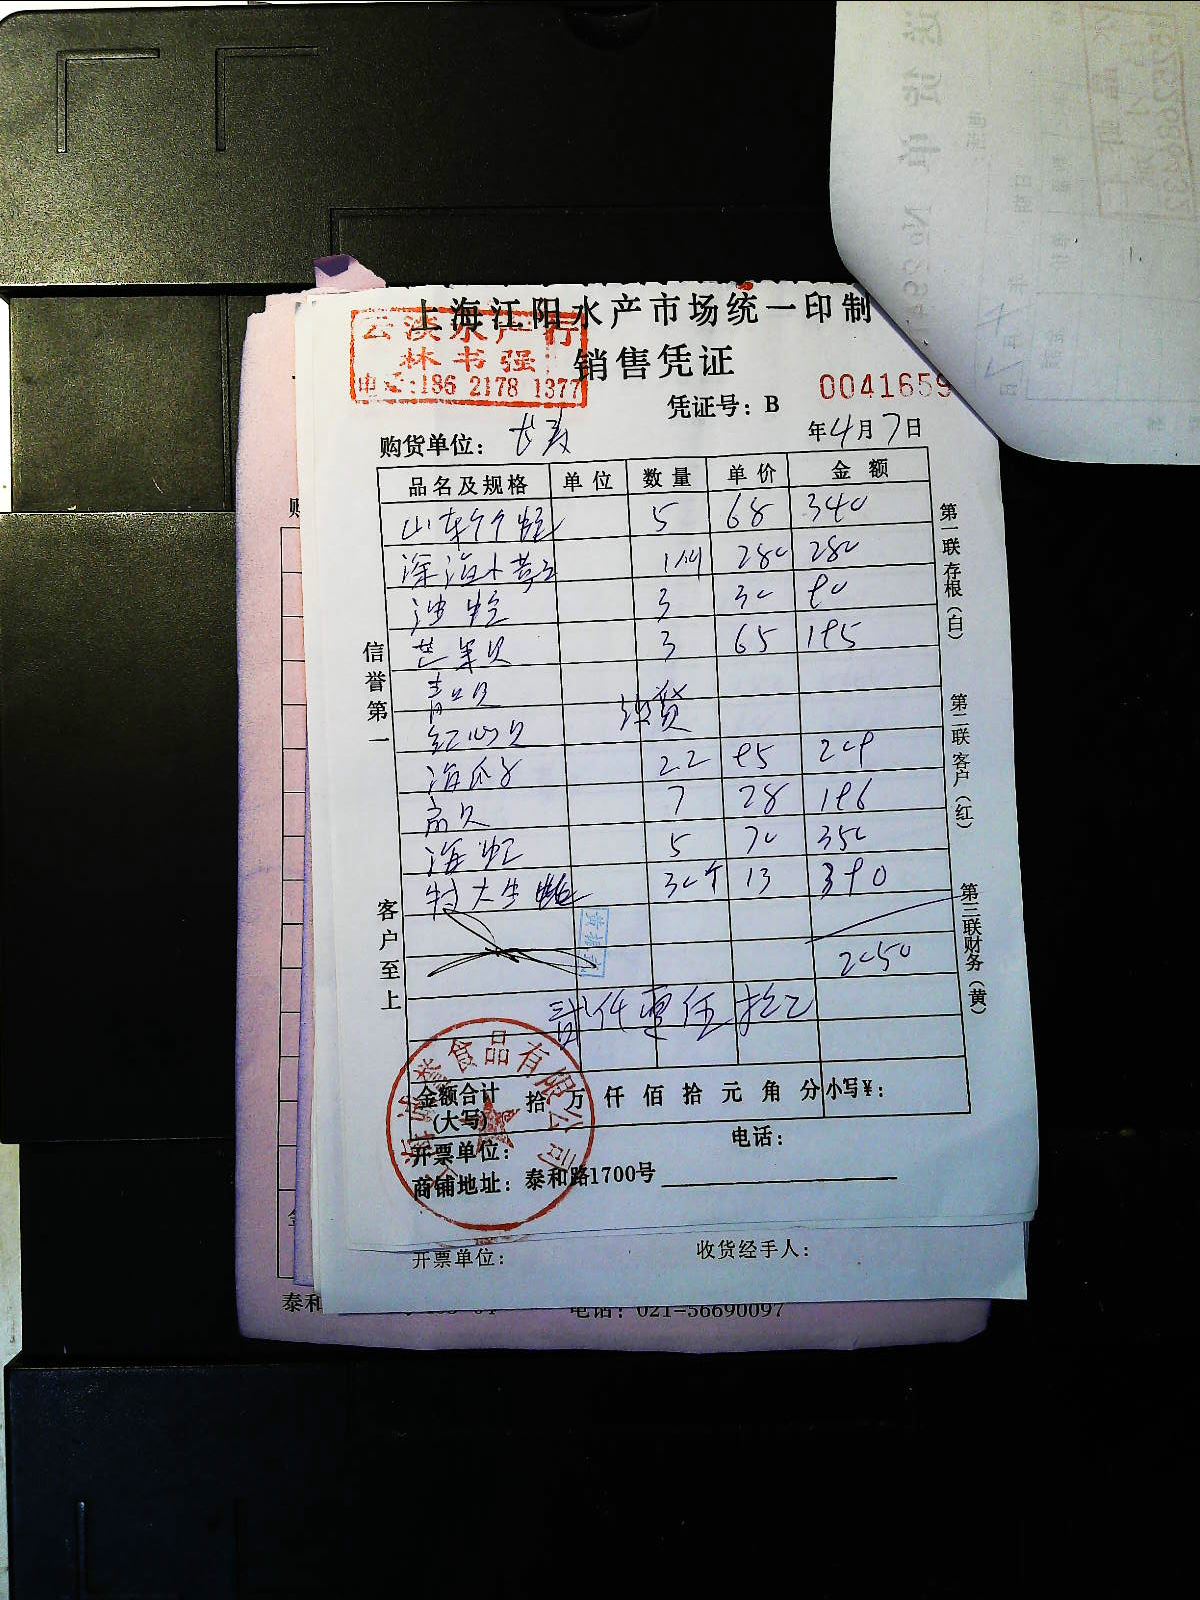 上海江阳水产市场统一印制
云淡水产行
林书强
电话:186 2178 1377
销售凭证
凭证号：B 0041659
购货单位：
年4月7日
品名及规格 单位 数量 单价 金额
山东 蛏 5 68 340
深海小 280 280
油蛏 3 30 90
芒果贝 3 65 195
青口贝
红心贝 没货
海瓜子 2.2 95 209
扇贝 7 28 196
海虹 5 70 350
特大生蚝 30个 13 390
2050
贰仟零伍拾
金额合计(大写) 拾 万 仟 佰 拾 元 角 分 小写¥：
开票单位： 电话：
商铺地址：泰和路1700号
食品有限公司
信誉第一
客户至上
第一联存根（白）
第二联客户（红）
第三联财务（黄）
开票单位： 收货经手人：
泰和
电话：021-56690097